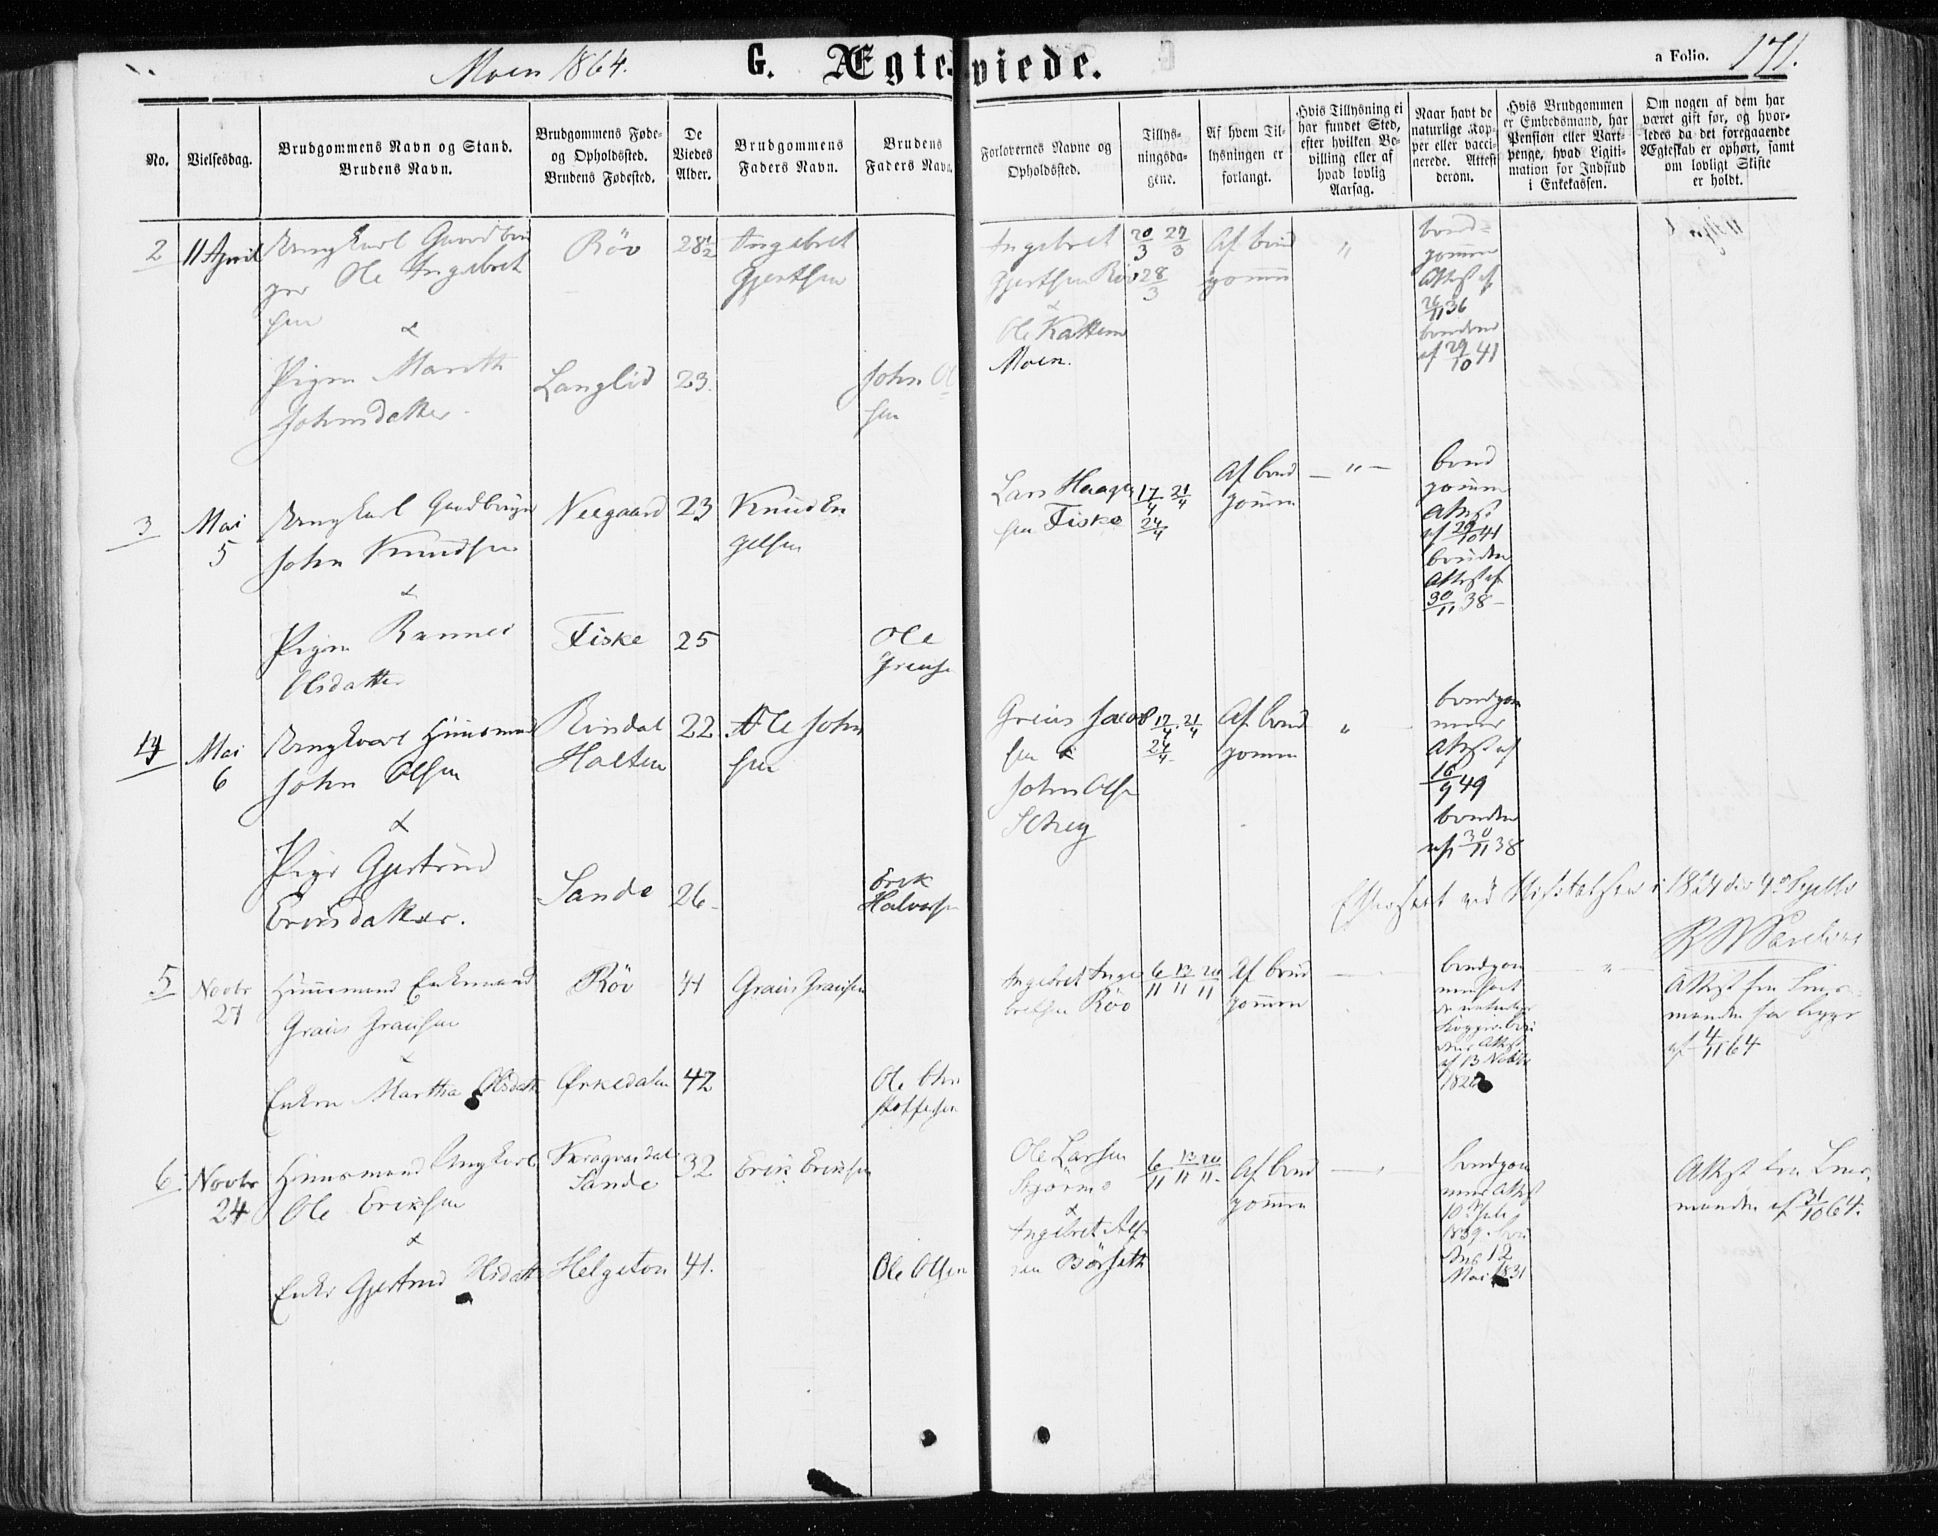 Moen 1864.
G. Ægteviede.
a Folio. 171.
No.
Vielsesdag.
Brudgommens Navn og Stand.
Brudens Navn.
Brudgommens Føde-
og Opholdssted.
Brudens Fødested.
De
Viedes
Alder.
Brudgommens
Faders Navn.
Brudens
Faders Navn.
Forlovernes Navne og
Opholdssted.
Tillys-
ningsda-
gene.
Af hvem Til-
lysningen er
forlangt.
Hvis Tillysning ei
har fundet Sted,
efter hvilken Be-
villing eller af
hvad lovlig
Aarsag.
Naar havt de
naturlige Kop-
per eller vacci-
nerede. Attest
derom.
Hvis Brudgommen
er Embedsmand, har
Pension eller Vart-
penge, hvad Legiti-
mation for Indskud
i Enkekassen.
Om nogen af dem har
været gift før, og hvor-
ledes da det foregaaende
Ægteskab er ophørt, samt
om lovligt Skifte
er holdt.
2
11 April
Ungkarl Gaardbru
ger Ole Ingebret
sen
&
Pigen Marith
Johnsdatter
Røv
Langlid
28½
23
Ingebret
Gjertsen
John Ol
sen
Ingebret
Gjertsen Røv
&
Ole Kattem
Moen.
20/3 27/3
28/3
Af brud
gommen
"
brud-
gommen
Attest af
26/11 36
bruden
af 29/10 41
3
Mai
5
Ungkarl Gaardbruger
John Knudsen
&
Pigen Rannei
Olsdatter
Neegaard
Fiske
23
25
Knud En
gelsen
Ole
Lars Haagen
sen Fiske
17/4 21/4
24/4
Af brud
gommen
- " -
brud
gommen
Attest
af 29/10 41
bruden
Attest af
30/11 38
4
Mai
6
Ungkarl Huusmand
John Olsen
&
Pige Gjertrud
Eriksdatter.
Rindal
Halten
Sande
22
26
Ole John
sen
Erik
Halvorsen
Jacob
sen &
John Olsen
17/4 21/4
24/4
Af brud
gommen
"
brudgom
mens
Attest af
16/9 49
bruden
af 30/11 38
1864
5
Novbr
27
Huusmand Enkemand
&
Enken Martha Olsdatter
Røv
Ørkedalen
41
42
Ole Chri
stoffersen
Ingebret Inge
bretsen Røv
6/11 13/11 20/11
Af brud
gommen
brudgom
Attest
af 13 Novbr
Attest fra Lens
manden for begge
af 4/11 64
6
Novbr
24
Huusmand Ungkarl
Ole Eriksen
&
Enke Gjertrud Olsdatter
Sande
Helgeton
32
41.
Erik Eriksen
Ole Olsen
Ole Larsen
&
Ingebret
sen Børseth
6/11 13/11 20/11
Af brud
gommen
brudgom
mens Attest
10 Juli
1839
12
Mai 1831
Attest fra Lens
manden af 31/10 64.